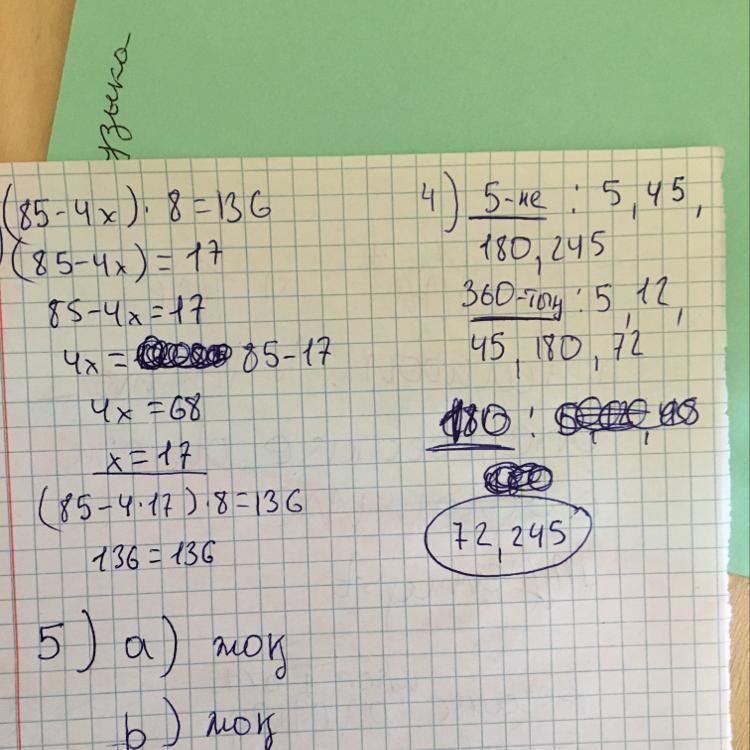 узыка
(85-4x)·8=136
(85-4x)=17
85-4x=17
4x= 85-17
4x=68
x=17
(85-4·17)·8=136
136=136
5) a) жоқ
b) жоқ
4) 5-не : 5, 45,
180, 245
360-тың : 5, 12,
45, 180, 72
180 :
72, 245